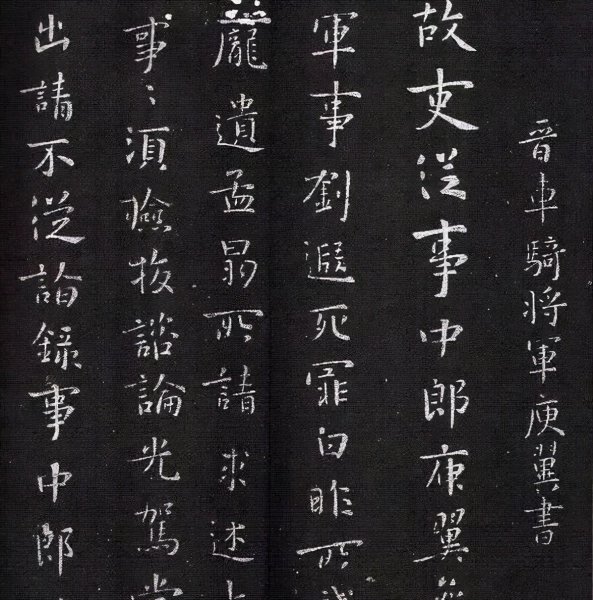 晉車騎將軍庾翼書
故吏從事中郎庾翼
軍事劉遐死罪白昨所
龐遺孟昺所請求述
事〻須檢按諮論光駕當
出請不從諮錄事中郎